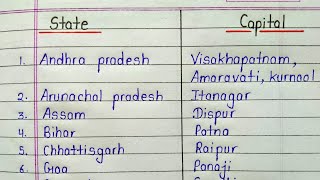 State Capital
1. Andhra pradesh Visakhapatnam,
Amaravati, kurnool
2. Arunachal pradesh Itanagar
3. Assam Dispur
4. Bihar Patna
5. Chhattisgarh Raipur
6. Goa Panaji